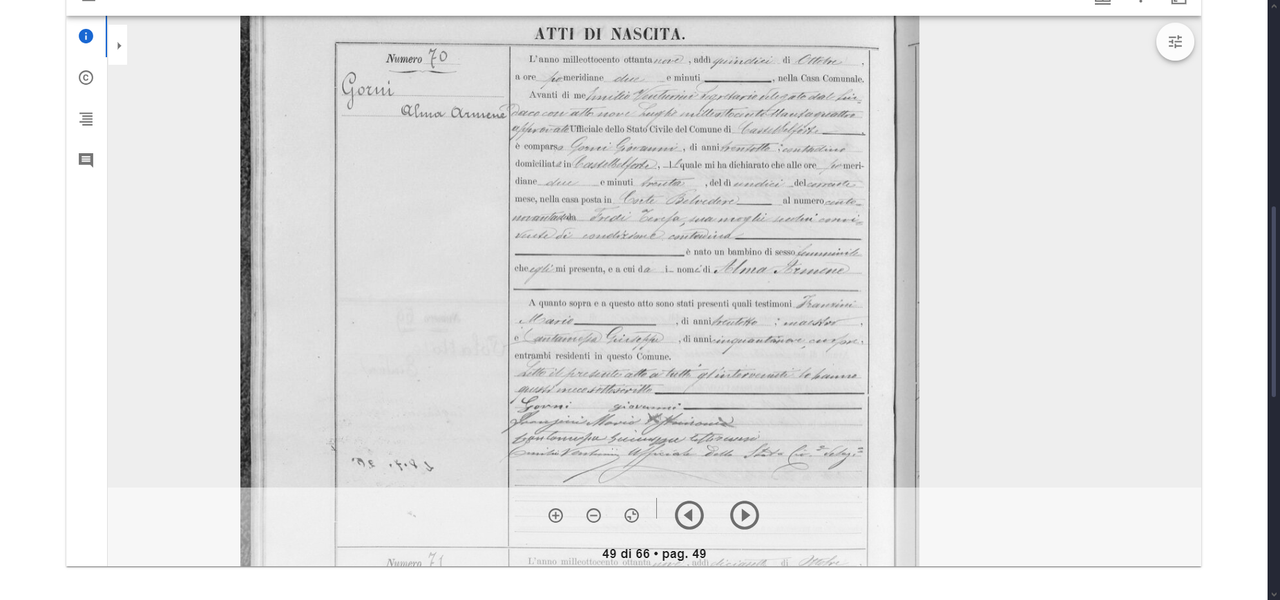 ATTI DI NASCITA.
Numero 70
Gorni
Alma Armene
L'anno milleottocento ottanta nove, addì quindici di Ottobre,
a ore pomeridiane due e minuti, nella Casa Comunale.
Avanti di me Emilio Venturini Segretario delegato dal Sin-
daco con atto nove Luglio milleottocentottantaquattro
approvato Ufficiale dello Stato Civile del Comune di Castelbelforte
è comparso Gorni Giovanni, di anni trentotto contadino
domiciliato in Castelbelforte, il quale mi ha dichiarato che alle ore pomeri-
diane due e minuti trenta, del dì undici del corrente
mese, nella casa posta in Corte Belvedere al numero cento-
da Fredi Teresa, sua moglie seco convi-
vente di condizione contadina
è nato un bambino di sesso femminile
che egli mi presenta, e a cui dà i nomi di Alma Armene
A quanto sopra e a questo atto sono stati presenti quali testimoni Franzini
Mario, di anni trentotto maestro,
e Cantamessa Giuseppe, di anni cinquantanove,
entrambi residenti in questo Comune.
Letto il presente atto a tutti gl'intervenuti lo hanno
questi meco sottoscritto
Gorni giovanni
Franzini Mario Testimonio
Cantamessa Giuseppe testimonio
Emilio Venturini Ufficiale dello Stato Civ.
49 di 66 • pag. 49
Numero 71
L'anno milleottocento ottanta nove, addì diecisette di Ottobre,